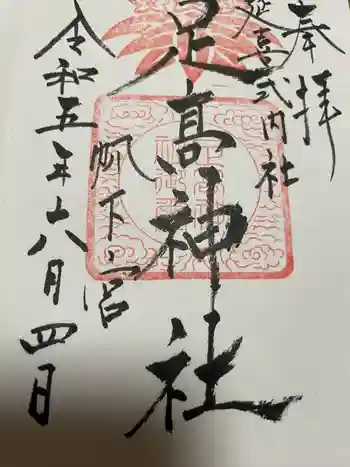 奉拝
延喜式内社
足高神社
帆下宮
令和五年六月四日